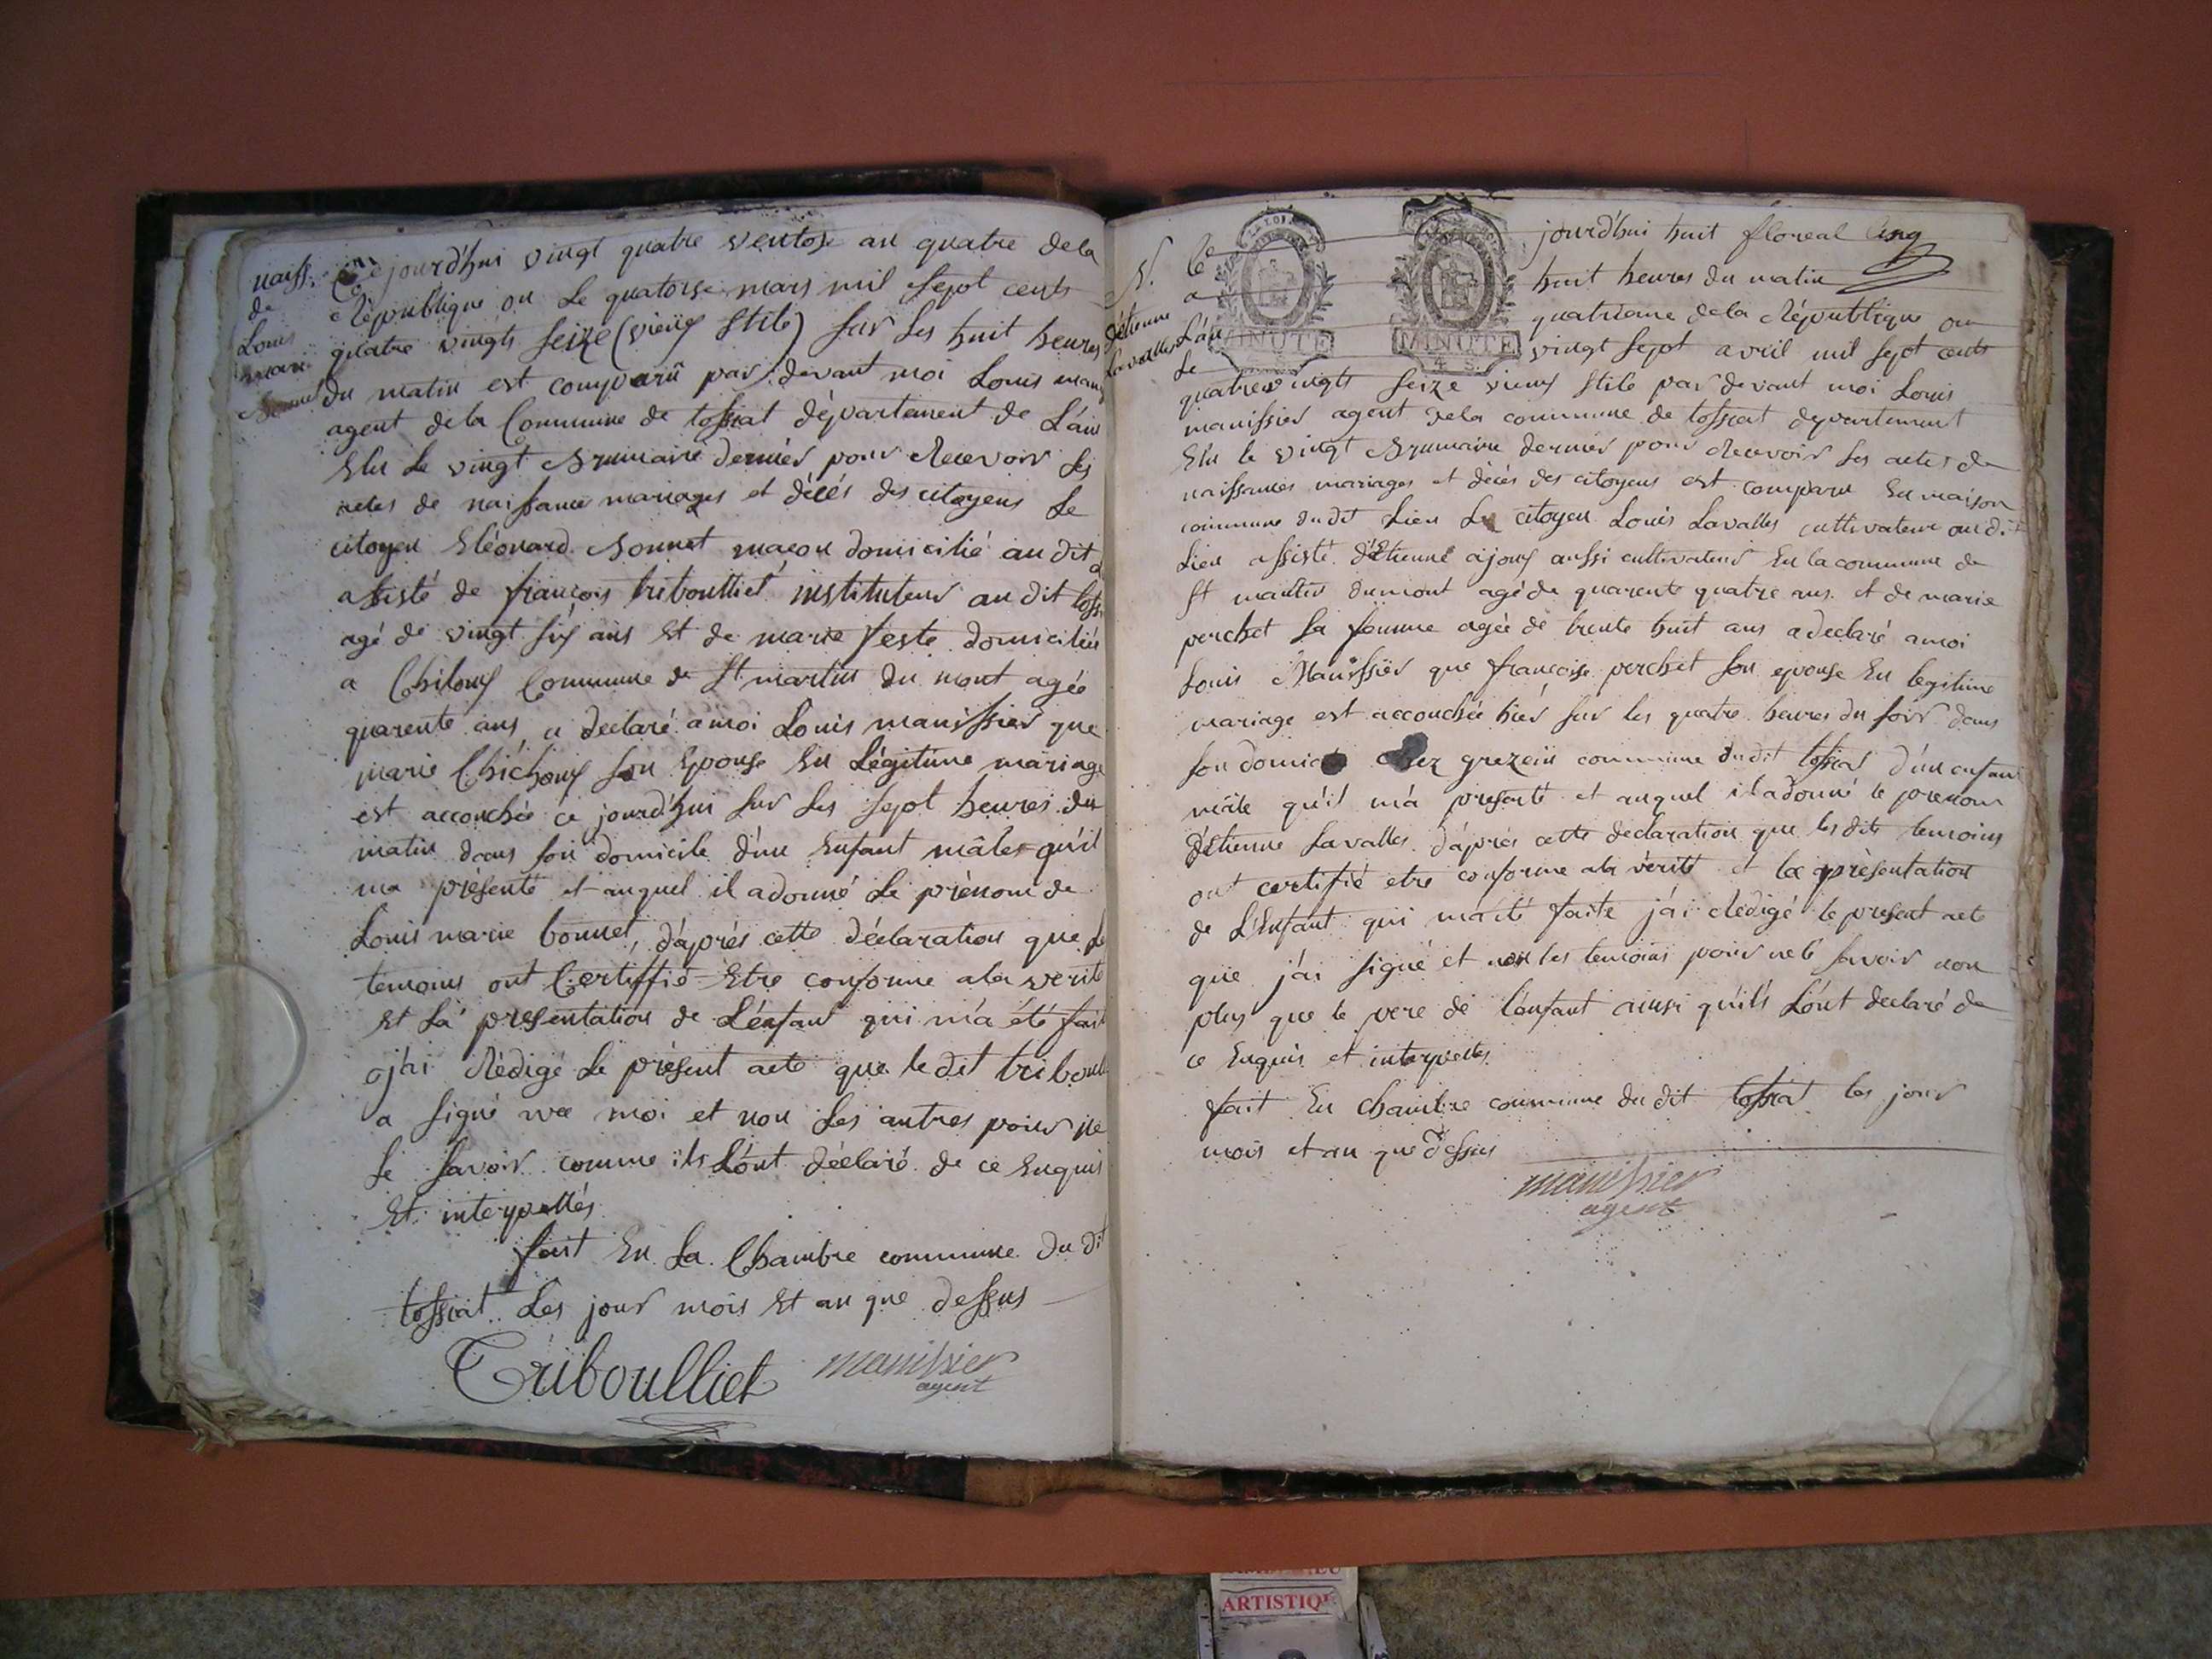 naiss.
de
Louis
marie
Bonnet
Ce jourd'hui vingt quatre ventose an quatre de la
République ou Le quatorze mars mil sept cents
quatre vingts seize (vieux stile) sur les huit heures
du matin est comparû par devant moi Louis
agent de la Commune de tossiat département de L'ain
Elu Le vingt Brumaire dernier pour Recevoir les
actes de naissance mariages et décés des citoyens Le
citoyen Eléonard Bonnet maçon domicilié au dit
assisté de françois triboulliet instituteur au dit
agé de vingt six ans Et de marie feste domiciliée
a Chiloux Commune de St martin du mont agée
quarente ans, a declaré a moi Louis manissier que
marie Chichoux son Epouse En Légitime mariage
est accouchée ce jourd'hui sur les sept heures du
matin dans son domicile d'un Enfant mâle qu'il
ma présenté et auquel il a donné Le prénom de
Louis marie bonnet, d'aprés cette déclaration que
temoins ont Certiffié Etre conforme a la verité
Et La présentation de L'enfant qui m'a été
j'ai Rédigé Le présent acte que le dit
a signé avec moi et non Les autres pour ne
Le savoir comme ils L'ont déclaré de ce Enquis
Et interpellés
fait En La Chambre commune du dit
tossiat Les jour mois Et an que dessus
Triboulliet manissier
agent
N.
d'étienne
Lavalles
LA LOI
MINUTE
MINUTE
4 S.
Ce jourd'hui huit floreal
a huit heures du matin
L'an quatrieme de la République ou
Le vingt sept avril mil sept cents
quatrevingts seize vieux stile par devant moi Louis
manissier agent de la commune de tossiat departement
Elu le vingt Brumaire dernier pour Recevoir les actes de
naissances mariages et décés des citoyens est comparu En maison
commune du dit Lieu Le citoyen Louis Lavalles cultivateur au dit
Lieu assisté d'Etienne ajoux aussi cultivateur En la commune de
St martin dumont agé de quarente quatre ans et de marie
perchet sa femme agée de trente huit ans a declaré a moi
Louis Manissier que françoise perchet son epouse En legitime
mariage est accouchée hier sur les quatre heures du soir dans
son chez grezein commune du dit tossiat d'un enfant
mâle qu'il m'a presenté et auquel il a donné le prenom
d'étienne Lavalles d'aprés cette declaration que les dits temoins
ont certifié etre conforme ala vérité et la présentation
de L'Enfant qui m'a été faite j'ai Rédigé le present acte
que j'ai signé et non les temoins pour ne le savoir non
plus que le pere de l'enfant ainsi qu'ils L'ont declaré de
ce Enquis et interpellés
fait En chambre commune du dit tossiat les jour
mois et an que dessus
manissier
agent
ARTISTIQU